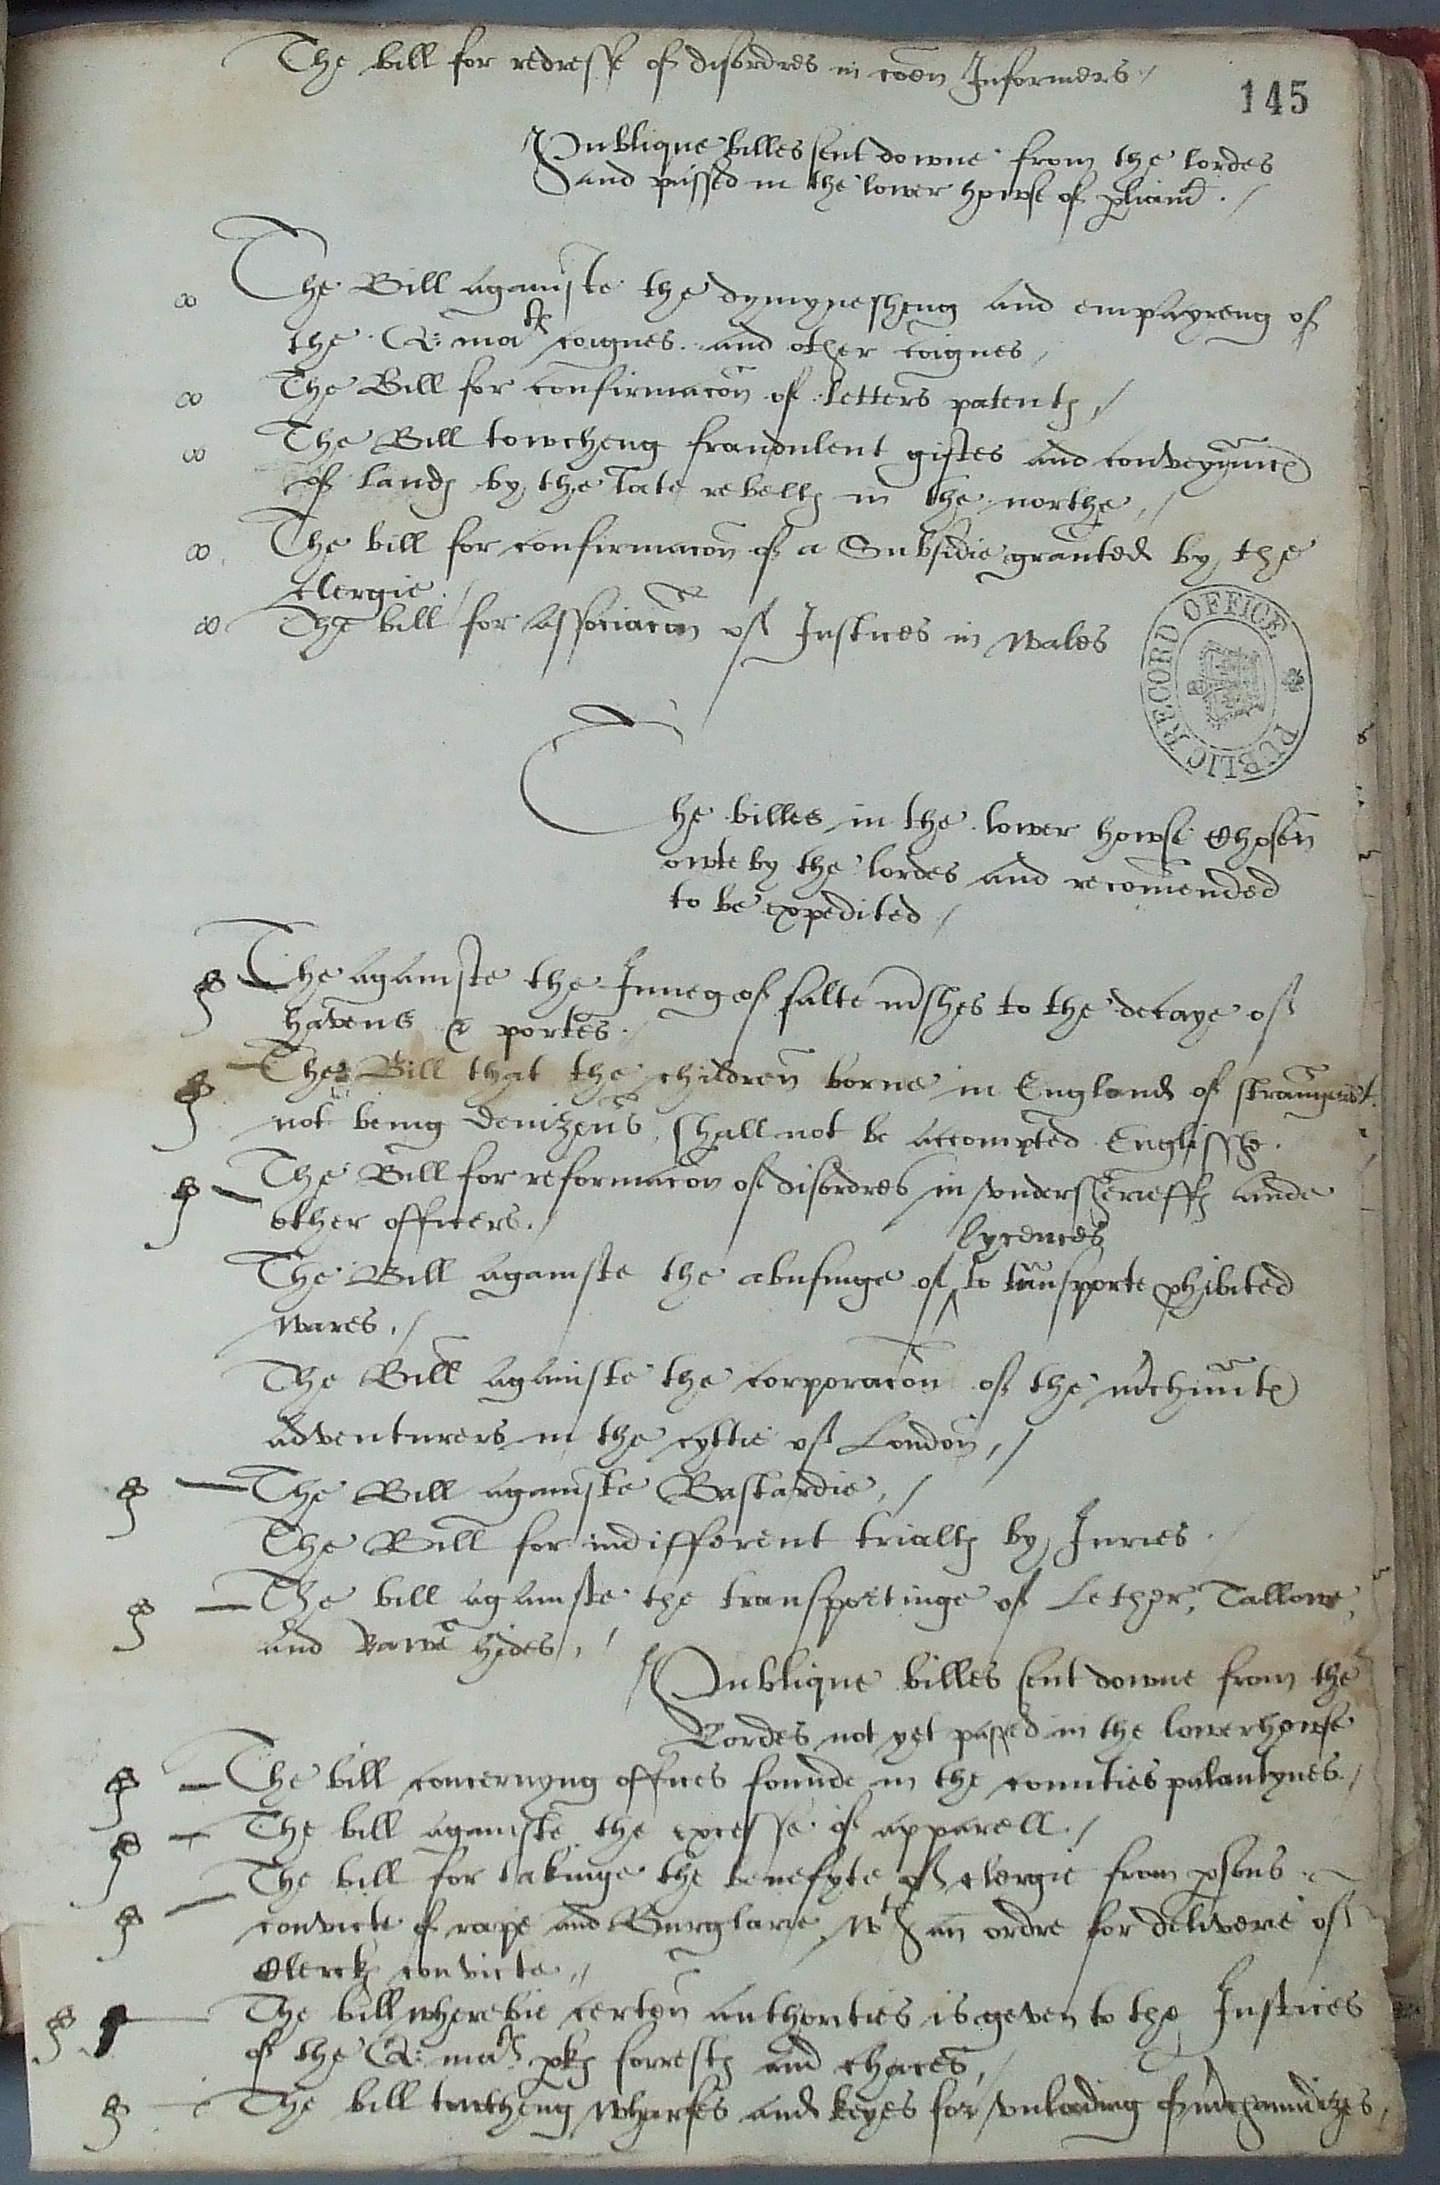 The bill for redresse of disordres in coen Informers /
145
Publique billes sent downe from the lordes
and passed in the lower howse of pliamt . /
The Bill againste the dymynesheng and empayreng of
the Q: matꝭ coignes . and other coignes /
The Bill for confirmacon of letters patentꝭ /
The Bill towcheng fraudulent giftes and conveyance
of landꝭ by the late rebellꝭ in the northe , /
The bill for confirmacon of a Subsidie graunted by the
clergie . /
The bill for Associacon of Justices in Wales
PUBLIC RECORD OFFICE
The billes in the lower howse Chosen
owte by the lordes and recomended
to be expedited /
The againste the Inneg of salte mshes to the decaye of
havens & portes . /
The Bill that the children borne in England of straungers
not being Denizens , shall not be accompted Englisshe .
The Bill for reformacon of disordres in undersherieffꝭ ande
other officers . /
lycences
The Bill againste the abusinge of ^ to transporte phibited
wares , /
The Bill againste the corporacon of the mchuntꝭ
adventurers in the cyttie of London , /
The Bill againste Bastardie , /
The Bill for indifferent triallꝭ by Juries . /
The bill againste the transportinge of Lether , Tallowe ,
and Rawe hides , /
Publique billes sent downe from the
Lordes not yet passed in the lower howse
The bill concernyng offices founde in the counties palantynes . /
The bill againste the excesse of apparell . /
The bill for takinge the benefyte of clergie from psons
convicte of rape and Burglarie wth an ordre for deliverie of
Clerckꝭ convicte , /
The bill wherebie certen authorities is geven to the Justices
of the Q: matꝭ pkꝭ forrestꝭ and chaces , /
The bill towcheng wharfes and keyes for unlading of mchaundizes ,